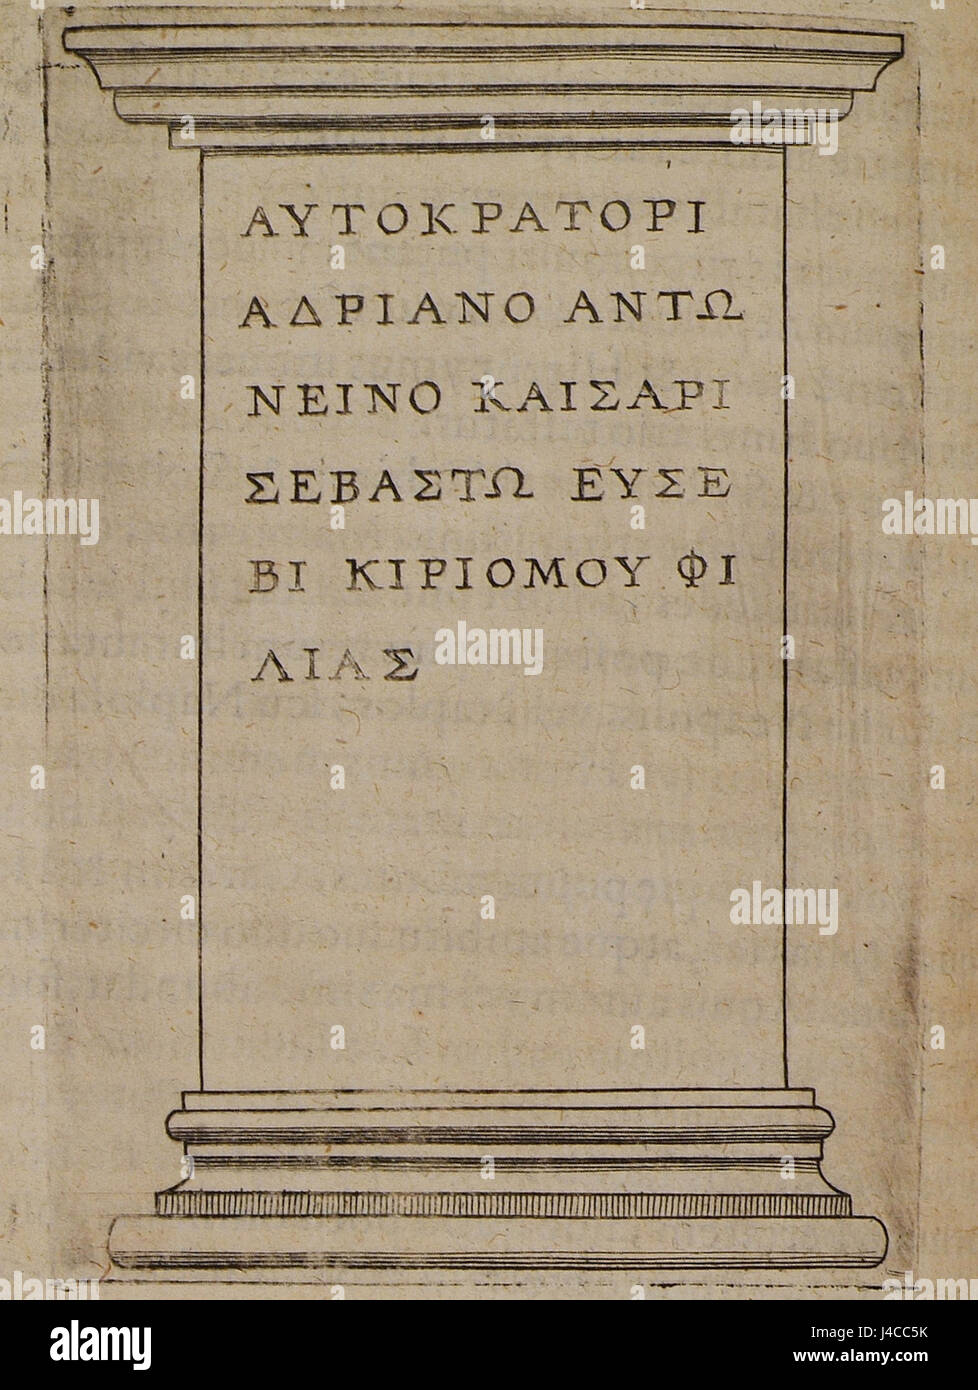 ΑΥΤΟΚΡΑΤΟΡΙ
ΑΔΡΙΑΝΟ ΑΝΤΩ
ΝΕΙΝΟ ΚΑΙΣΑΡΙ
ΣΕΒΑΣΤΩ ΕΥΣΕ
ΒΙ ΚΙΡΙΟΜΟΥ ΦΙ
ΛΙΑΣ
alamy stock photo
J4CC5K
www.alamy.com